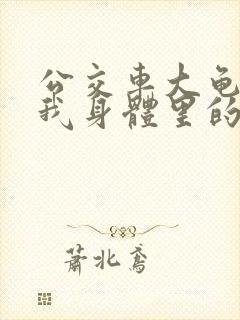 公交車大龟
我身體里的
蕭北鳶